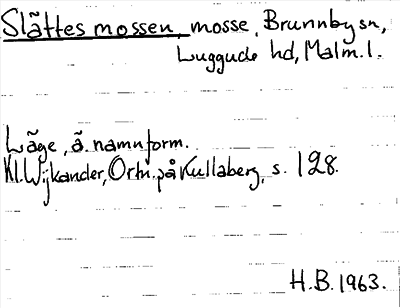 Slättes mossen, mosse, Brunnby sn,
Luggude hd, Malm. l.
Läge, ä. namnform.
Kl. Wijkander, Ortn. på Kullaberg, s. 128.
H.B. 1963.